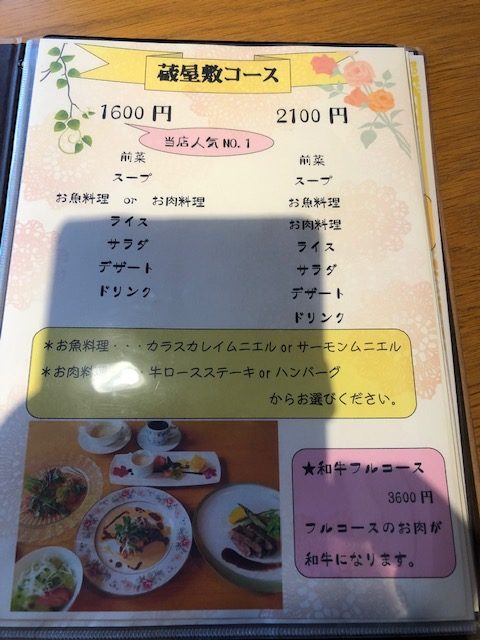 蔵屋敷コース
1600円
2100円
当店人気NO.1
前菜
スープ
お魚料理 or お肉料理
ライス
サラダ
デザート
ドリンク
前菜
スープ
お魚料理
お肉料理
ライス
サラダ
デザート
ドリンク
*お魚料理・・・カラスカレイムニエルorサーモンムニエル
*お肉料 ・牛ロースステーキorハンバーグ
からお選びください。
★和牛フルコース
3600円
フルコースのお肉が
和牛になります。